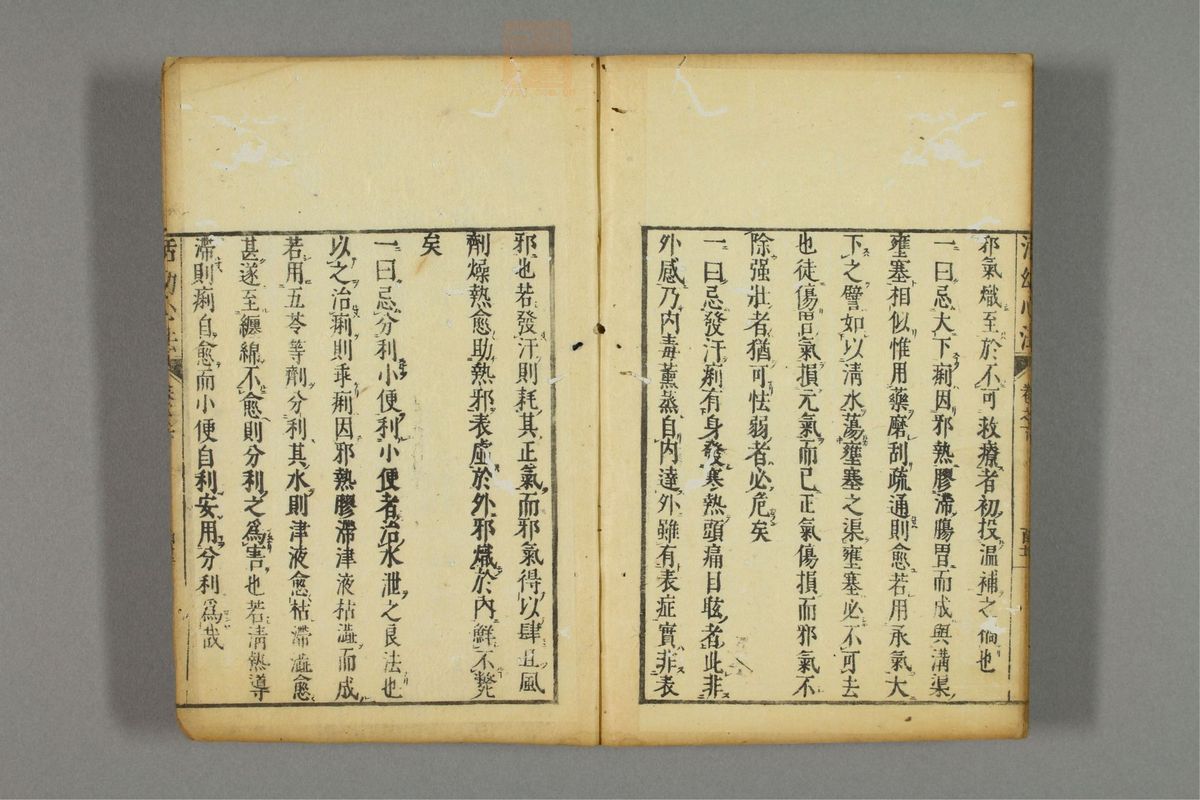 邪氣熾至於不可救療者初投温補之禍也
一曰忌大下痢因邪熱膠滯腸胃而成與溝渠
壅塞相似惟用藥磨刮疏通則愈若用承氣大
下之譬如以清水蕩壅塞之渠壅塞必不可去
也徒傷胃氣損元氣而已正氣傷損而邪氣不
除强壯者猶可怯弱者必危矣
一曰忌發汗痢有身發寒熱頭痛目眩者此非
外感乃内毒薰蒸自内達外雖有表症實非表
邪也若發汗則耗其正氣而邪氣得以肆且風
劑燥熱愈助熱邪表虛於外邪熾於内鮮不斃
矣
一曰忌分利小便利小便者治水泄之良法也
以之治痢則乖痢因邪熱膠滯津液枯澁而成
若用五苓等劑分利其水則津液愈枯滯澁愈
甚遂至纏綿不愈則分利之爲害也若清熱導
滯則痢自愈而小便自利安用分利爲哉
活幼心法